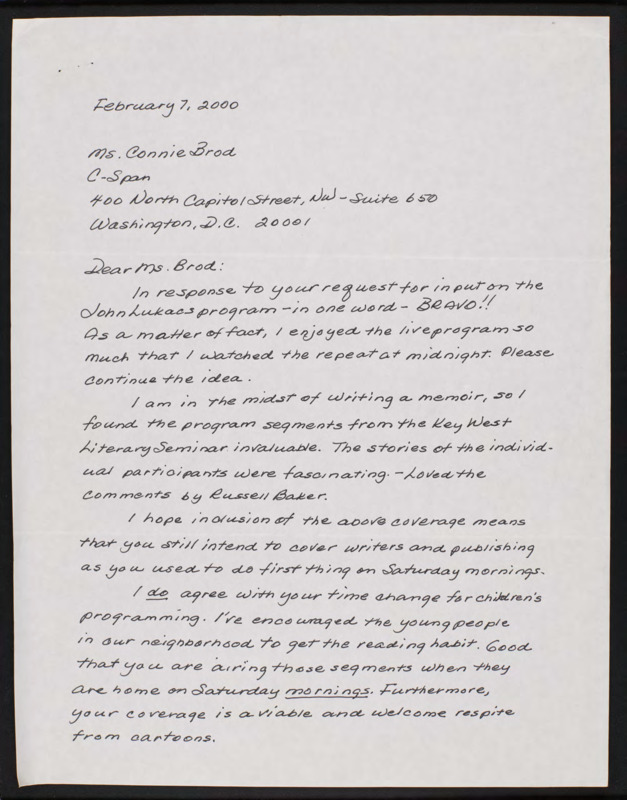 February 7, 2000
Ms. Connie Brod
C-Span
400 North Capitol Street, NW - Suite 650
Washington, D.C. 20001
Dear Ms. Brod:
In response to your request for input on the
John Lukacs program - in one word - BRAVO!!
As a matter of fact, I enjoyed the live program so
much that I watched the repeat at midnight. Please
continue the idea.
I am in the midst of writing a memoir, so I
found the program segments from the Key West
Literary Seminar invaluable. The stories of the individ-
ual participants were fascinating. - Loved the
comments by Russell Baker.
I hope inclusion of the above coverage means
that you still intend to cover writers and publishing
as you used to do first thing on Saturday mornings.
I do agree with your time change for children's
programming. I've encouraged the young people
in our neighborhood to get the reading habit. Good
that you are airing those segments when they
are home on Saturday mornings. Furthermore,
your coverage is a viable and welcome respite
from cartoons.